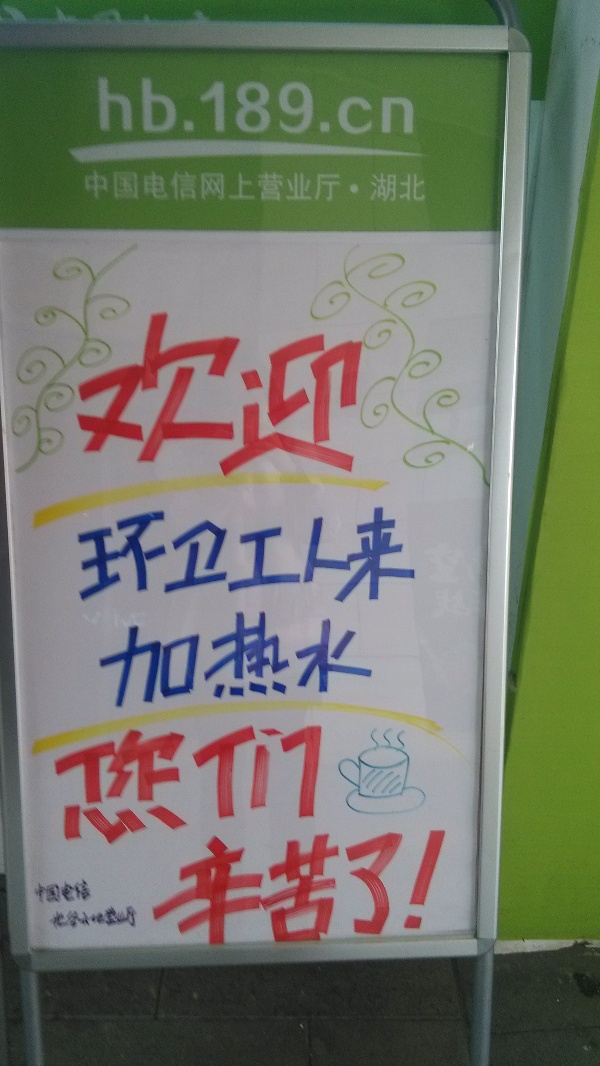 hb.189.cn
中国电信网上营业厅·湖北
欢迎
环卫工人来
加热水
您们
辛苦了!
中国电信
营业厅